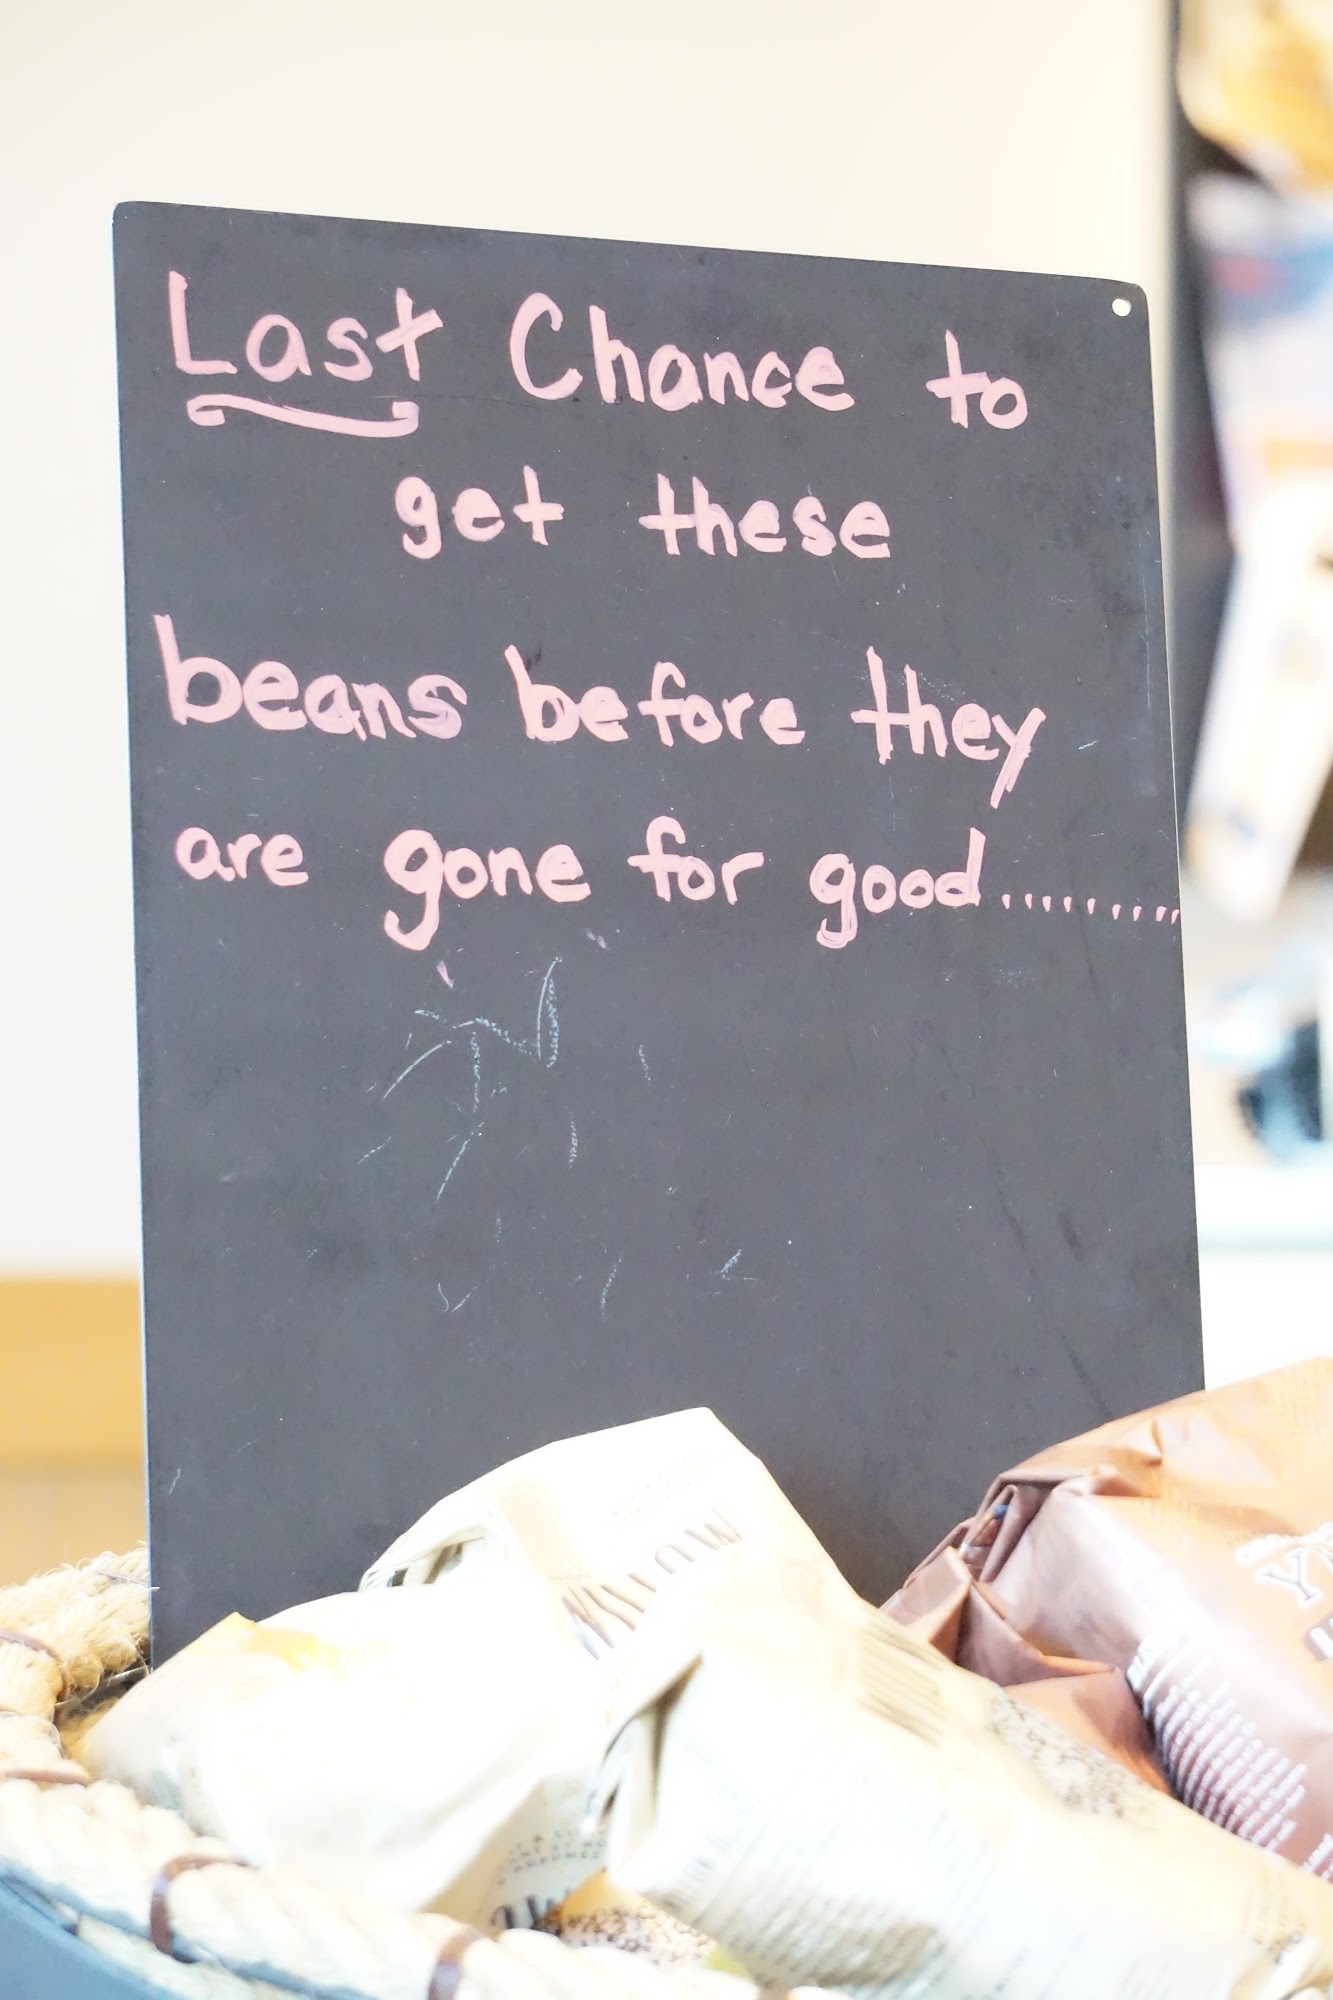 Last Chance to
get these
beans before they
are gone for good..........
WILLOW